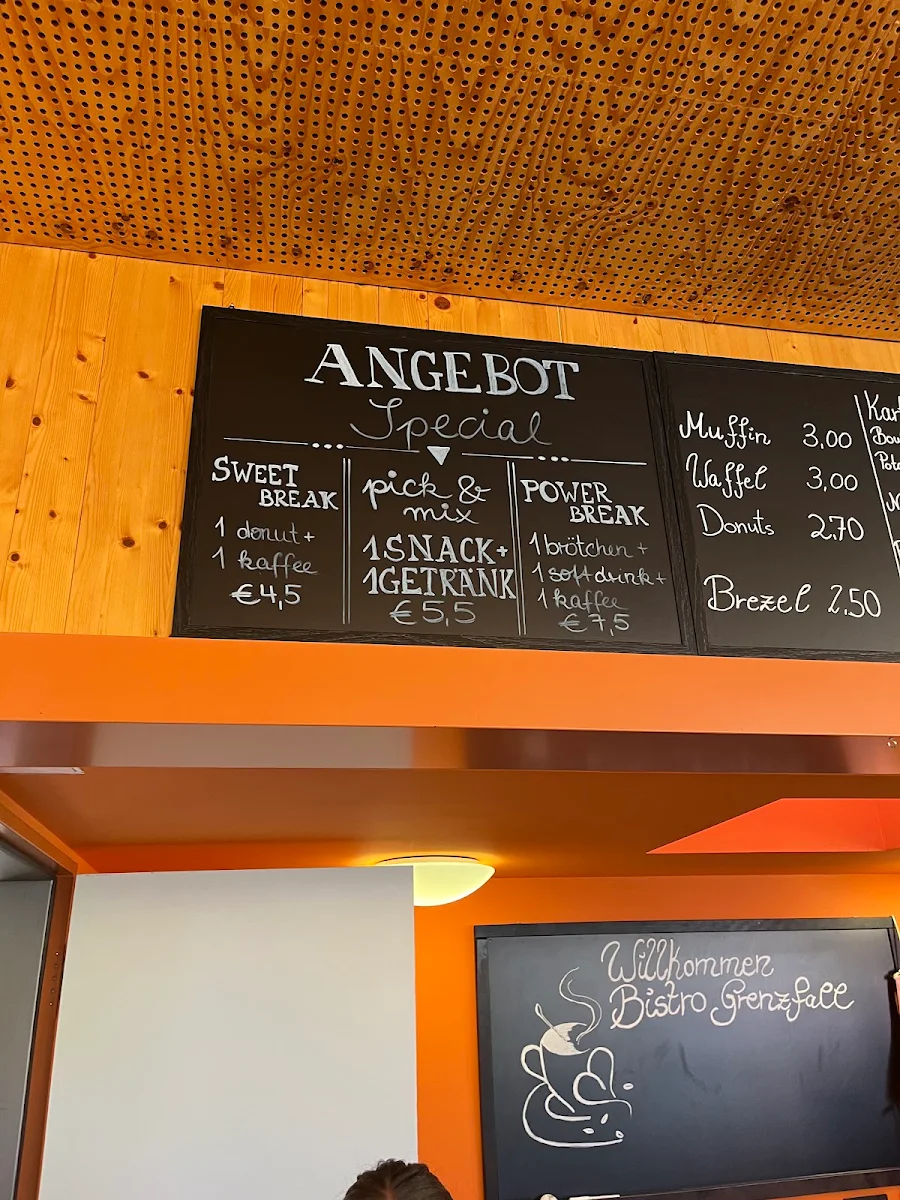 ANGEBOT
Special
SWEET
BREAK
1 donut +
1 kaffee
€4,5
pick &
mix
1 SNACK +
1 GETRÄNK
€5,5
POWER
BREAK
1 brötchen +
1 softdrink +
1 kaffee
€7,5
Muffin 3,00
Waffel 3,00
Donuts 2,70
Brezel 2,50
Willkommen
Bistro Grenzfall